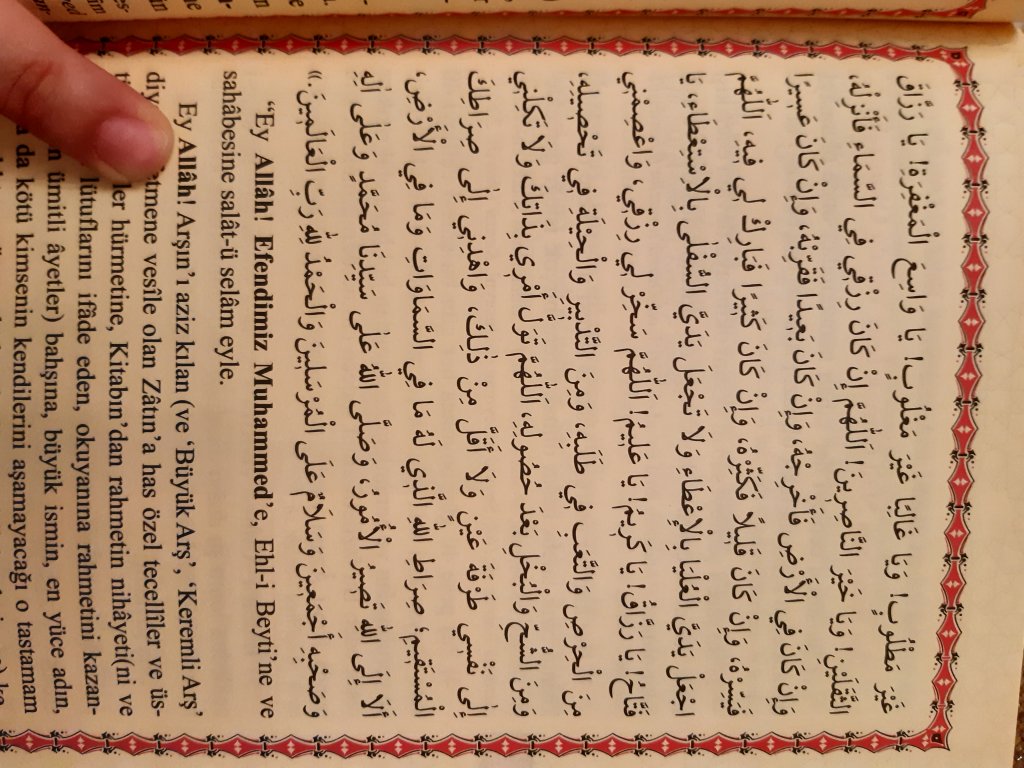 غَيْرَ مَطْلُوبٍ! وَيَا غَالِبًا غَيْرَ مَغْلُوبٍ! يَا وَاسِعَ الْمَغْفِرَةِ! يَا رَزَّاقَ
الثَّقَلَيْنِ! وَيَا خَيْرَ النَّاصِرِينَ! اَللّٰهُمَّ إِنْ كَانَ رِزْقِي فِي السَّمَاءِ فَأَنْزِلْهُ،
وَإِنْ كَانَ فِي الْأَرْضِ فَأَخْرِجْهُ، وَإِنْ كَانَ بَعِيدًا فَقَرِّبْهُ، وَإِنْ كَانَ عَسِيرًا
فَيَسِّرْهُ، وَإِنْ كَانَ قَلِيلاً فَكَثِّرْهُ، وَإِنْ كَانَ كَثِيرًا فَبَارِكْ لِي فِيهِ، اَللّٰهُمَّ
اجْعَلْ يَدَيَّ الْعُلْيَا بِالْإِعْطَاءِ وَلَا تَجْعَلْ يَدَيَّ السُّفْلٰى بِالْاِسْتِعْطَاءِ، يَا
فَتَّاحُ! يَا رَزَّاقُ! يَا كَرِيمُ! يَا عَلِيمُ! اَللّٰهُمَّ سَخِّرْ لِي رِزْقِي، وَاعْصِمْنِي
مِنَ الْحِرْصِ وَالتَّعَبِ فِي طَلَبِهِ، وَمِنَ التَّدْبِيرِ وَالْحِيْلَةِ فِي تَحْصِيلِهِ،
وَمِنَ الشُّحِّ وَالْبُخْلِ بَعْدَ حُصُولِهِ، اَللّٰهُمَّ تَوَلَّ أَمْرِي بِذَاتِكَ وَلَا تَكِلْنِي
إِلٰى نَفْسِي طَرْفَةَ عَيْنٍ وَلَا أَقَلَّ مِنْ ذٰلِكَ، وَاهْدِنِي إِلٰى صِرَاطِكَ
الْمُسْتَقِيمِ؛ صِرَاطِ اللّٰهِ الَّذِي لَهُ مَا فِي السَّمَاوَاتِ وَمَا فِي الْأَرْضِ،
أَلَا إِلَى اللّٰهِ تَصِيرُ الْأُمُورُ، وَصَلَّى اللّٰهُ عَلٰى سَيِّدِنَا مُحَمَّدٍ وَعَلٰى اٰلِهِ
وَصَحْبِهِ أَجْمَعِينَ وَسَلَامٌ عَلَى الْمُرْسَلِينَ وَالْحَمْدُ لِلّٰهِ رَبِّ الْعَالَمِينَ.»
“Ey Allâh! Efendimiz Muhammed’e, Ehl-i Beyti’ne ve
sahâbesine salât-ü selâm eyle.
Ey Allâh! Arşın’ı aziz kılan (ve ‘Büyük Arş’, ‘Keremli Arş’
itmene vesîle olan Zâtın’a has özel tecellîler ve üs-
ler hürmetine, Kitabın’dan rahmetin nihâyeti(ni ve
lütuflarını ifâde eden, okuyanına rahmetini kazan-
ümitli âyetler) bahşına, büyük ismin, en yüce adın,
da kötü kimsenin kendilerini aşamayacağı o tastamam